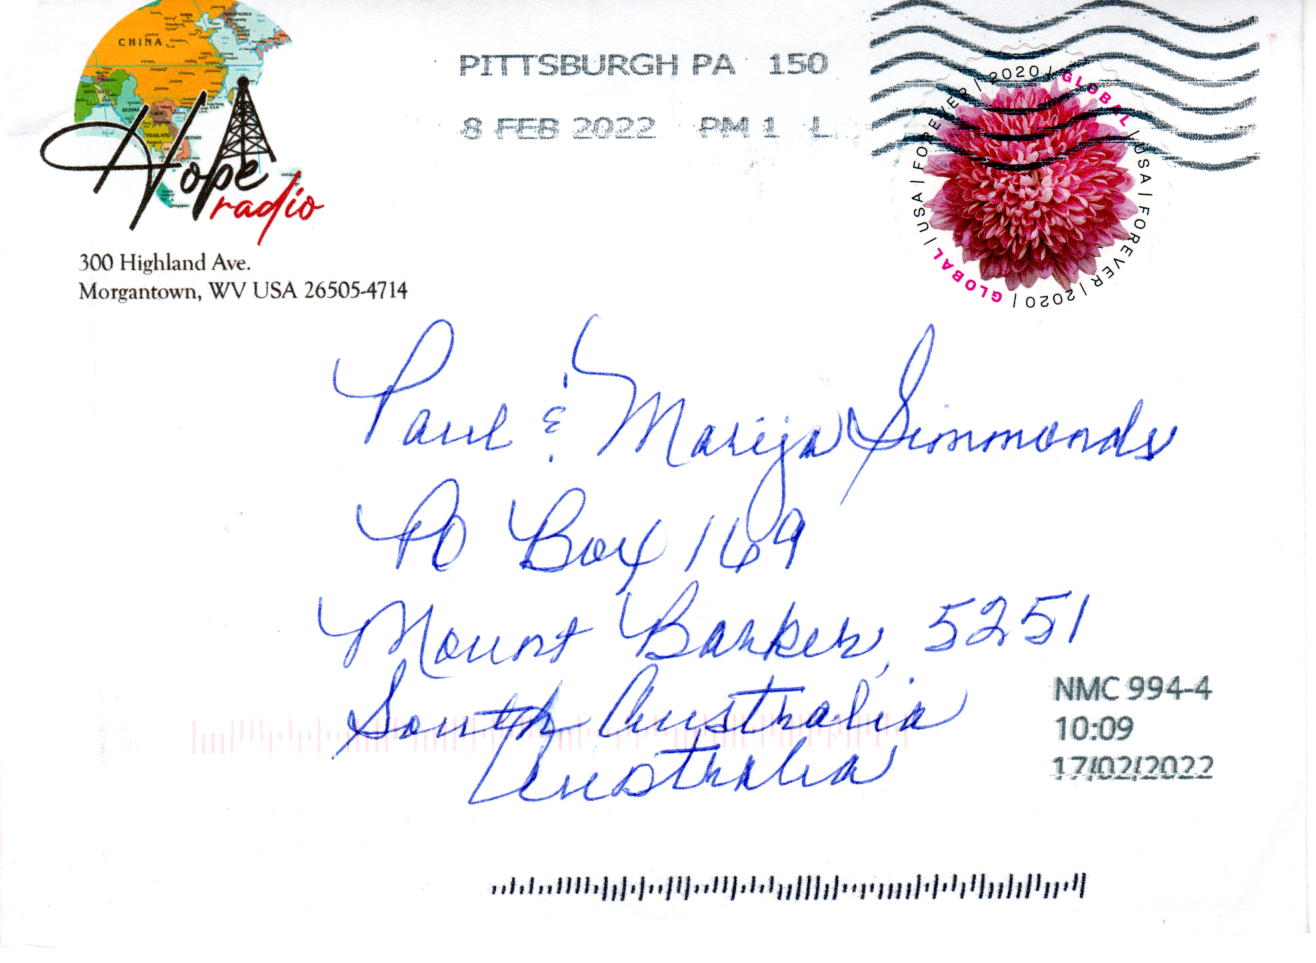 CHINA
THAILAND
Hope
radio
300 Highland Ave.
Morgantown, WV USA 26505-4714
PITTSBURGH PA 150
8 FEB 2022 PM 1 L
GLOBAL | USA | FOREVER | 2020 | GLOBAL | USA | FOREVER | 2020 |
Paul & Marija Simmonds
PO Box 169
Mount Barker, 5251
South Australia
Australia
NMC 994-4
10:09
17/02/2022